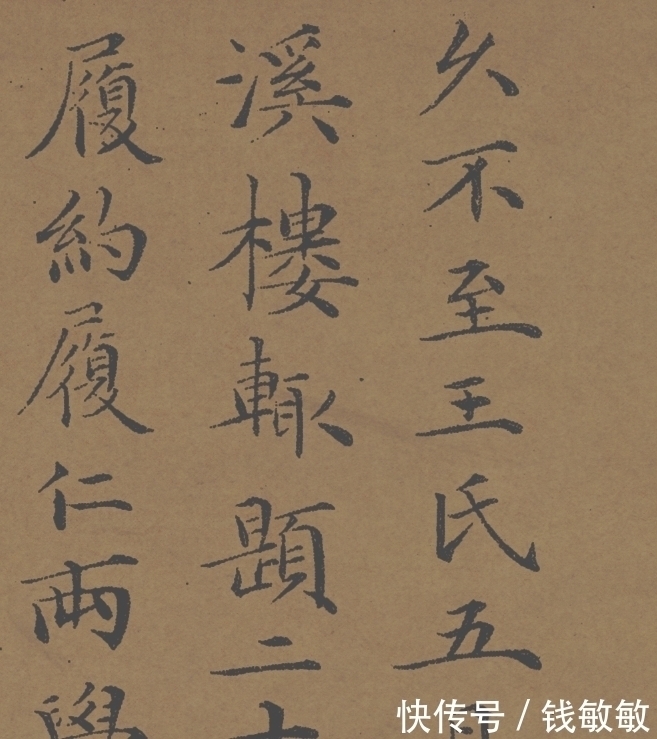 久不至王氏五
溪樓輙題二
履約履仁兩
快传号 / 钱敏敏